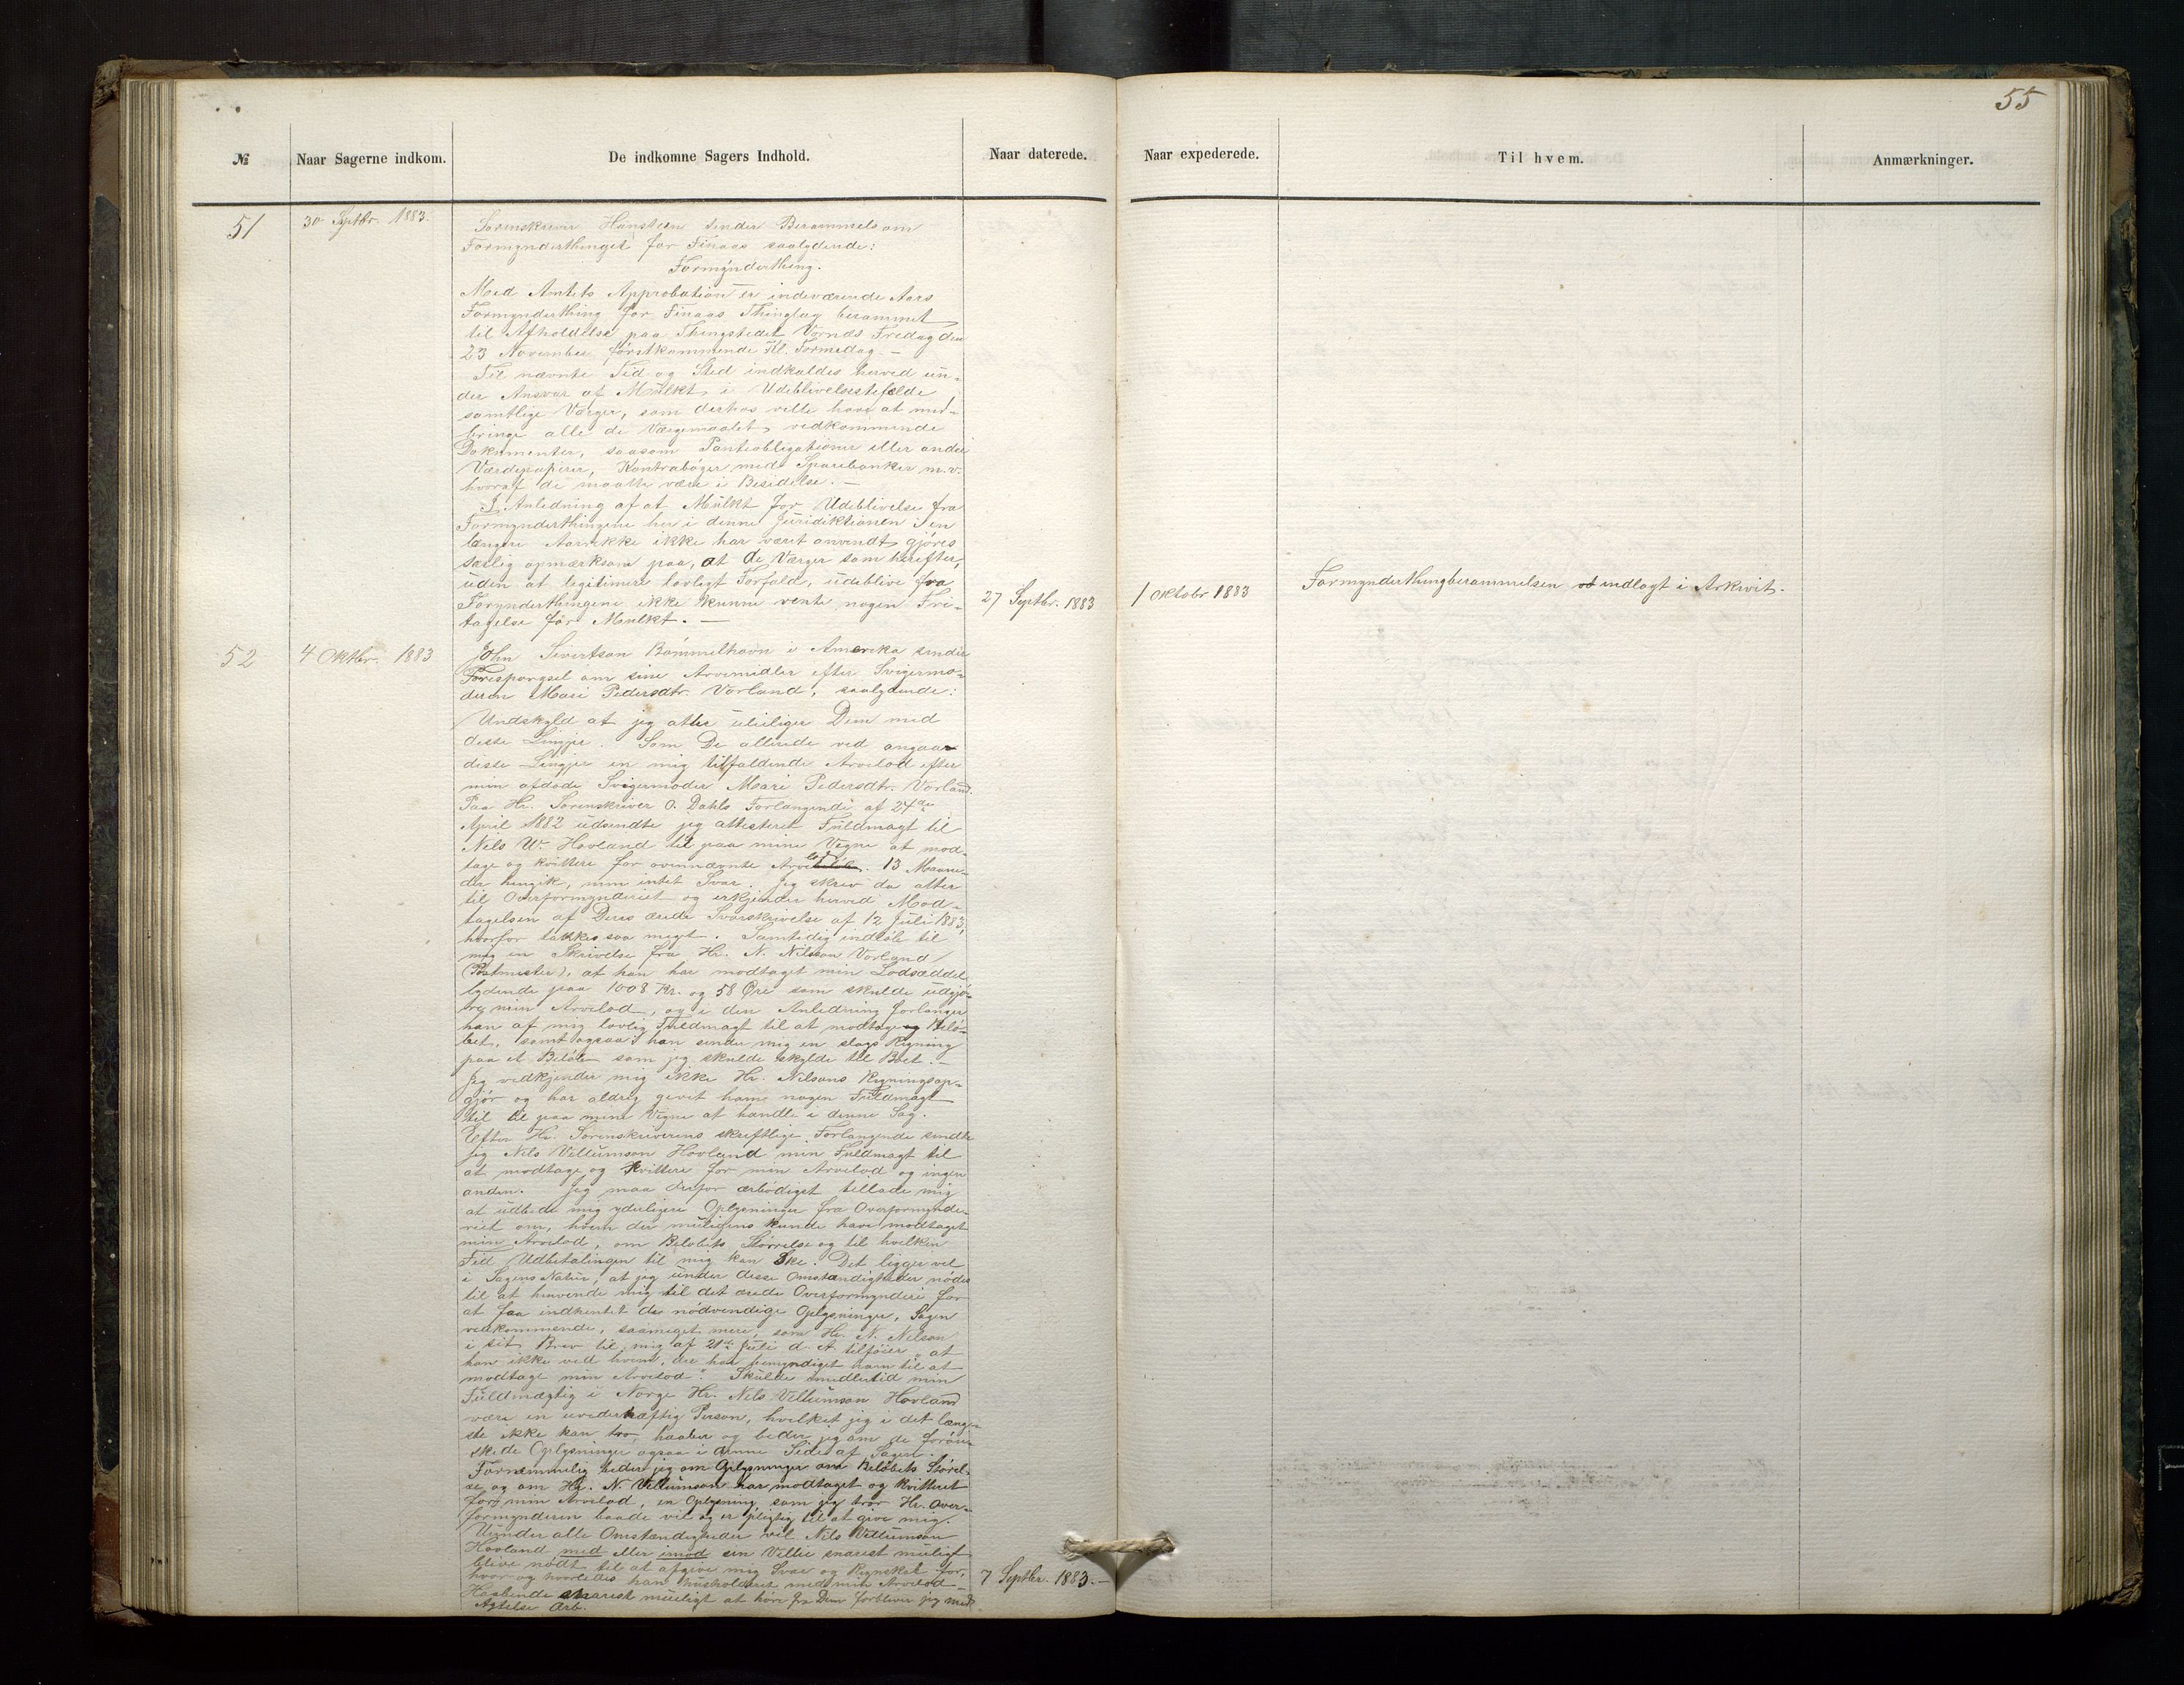 55
№
Naar Sagerne indkom.
De indkomne Sagers Indhold.
Naar daterede.
Naar expederede.
Til hvem.
Anmærkninger.
51
30 Septbr. 1883.
Sorenskriver Hansteen sender Berammels om
Formynderthinget for Finaas saalydende:
Formynderthing.
Med Amtets Approbation er indeværende Aars
Formynderthing for Finaas Thinglag berammet
til Afholdelse paa Thingstedet Vornæs Fredag den
23 November førstkommende Kl. Formedag. —
Til nævnte Tid og Sted indkaldes herved un-
der Ansvar af Mulkt i Udeblivelsestefælde
samtlige Værger, som derhos ville have at med-
bringe alle de Værgemaalet vedkommende
Dokumenter, saasom Panteobligationer eller andre
Værdipapirer, Kontrabøger med Sparebanker m.v.
hvoraf de maatte være i Besidelse. —
I Anledning af at Mulkt for Udeblivelse fra
Formynderthingene her i denne Juridiktionen i en
længere Aarrekke ikke har været anvendt, gjøres
særlig opmærksom paa, at de Værger som herefter,
uden at legitimere lovligt Forfald, udeblive fra
Forynderthingene ikke kunne vente nogen Fri-
tagelse for Mulkt. —
27 Septbr. 1883
1 Oktobr 1883
Formynderthingberammelsen indlagt i Arkivit.
52
4 Oktbr. 1883
John Sivertson Bømmelhavn i Amerika sender
Forespørgsel om sine Arvemidler efter Svigermo-
deren Mari Pedersdtr. Vorland, saalydende:
Undskyld at jeg atter uleiliger Dem med
disse Linjer. Som De allerede ved angaar
disse Linjer en mig tilfaldende Arvelod efter
min afdøde Svigermoder Mari Pedersdtr. Vorland.
Paa Hr. Sorenskriver O. Dahls Forlangende af 24de
April 1882 udsendte jeg attesteret Fuldmagt til
Nils W. Hovland til paa mine Vegne at mod-
tage og kvittere for ovennævnte Arvelod. 13 Maane-
der hengik, men intet Svar. Jeg skrev da atter
til Overformynderiet og erkjender herved Mod-
tagelsen af Deres ærede Svarskrivelse af 12 Juli 1883,
hvorfor takkes saa meget. Samtidig indløb til
mig en Skrivelse fra Hr. N. Nilson Vorland
(Postmester), at han har modtaget min Lodsæddel
lydende paa 1008 Kr. og 58 Øre som skulde udgjø-
re min Arvelod, og i den Anledning forlanger
han af mig lovlig Fuldmagt til at modtage Belø-
bet, samt ogsaa han sender mig en slags Regning
paa et Beløb som jeg skulde skylde til Boet. —
Jeg vedkjender mig ikke Hr. Nilsons Regningsop-
gjør og har aldrig givet ham nogen Fuldmagt
til paa mine Vegne at handle i denne Sag.
Efter Hr. Sorenskriverens skriftlige Forlangende sendte
jeg Nils Villumson Hovland min Fuldmagt til
at modtage og kvittere for min Arvelod og ingen
anden. Jeg maa derfor ærbødigst tillade mig
at udbede mig yderligere Oplysninger fra Overformynde-
riet om, hvem der muligens kunde have modtaget
min Arvelod, om Beløbets Størrelse og til hvilken
Tid Udbetalingen til mig kan ske. Det ligger vel
i Sagens Natur, at jeg under disse Omstændigheder nødes
til at henvende mig til det ærede Overformynderi for
at faa indhentet de nødvendige Oplysninger, Sagen
vedkommende, saameget mere, som Hr. N. Nilson
i sit Brev til mig af 21de Juli d. A. tilføier „at
han ikke ved hvem, der har bemyndiget ham til at
modtage min Arvelod". Skulde imidlertid min
Fuldmægtig i Norge Hr. Nils Villumson Hovland
være en uvederhæftig Person, hvilket jeg i det læng-
ste ikke kan tro, haaber og beder jeg om de forøn-
skede Oplysninger ogsaa i denne Side af Sagen.
Fornemmelig beder jeg om Oplysninger om Beløbets Størel-
se og om Hr. N. Villumson har modtaget og kvitteret
for min Arvelod, en Oplysning, som jeg tror Hr. Over-
formynderen baade vil og er pligtig til at give mig.
Uunder alle Omstændigheder vil Nils Villumson
Hovland med eller imod sin Villie snarest muligt
blive nødt til at afgive mig Svar og Regnskab for,
hvor og hvorledes han husholderet med min Arvelod. —
Haabende snarest muligt at høre fra Dem forbliver jeg med
Agtelse Ærb.
7 Septbr. 1883. —